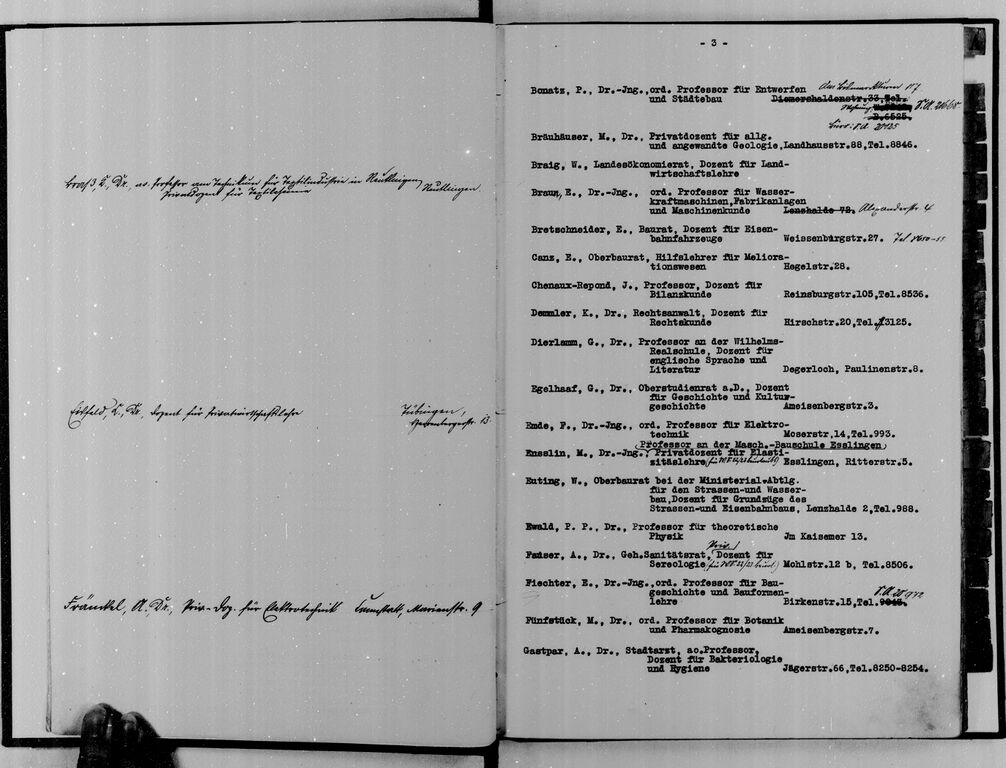 Brass, K., Dr., ao. Professor am Technikum für Textilindustrie in Reutlingen, Reutlingen.
Privatdozent für Textilchemie
Dozent für Privatwirtschaftslehre Tübingen,
Fränckel, A. Dr., Priv.-Doz. für Elektrotechnik Cannstatt, Marienstr. 9
- 3 -
Bonatz, P., Dr.-Jng.,ord. Professor für Entwerfen
und Städtebau Diemershaldenstr.33,Tel.
S.A. 21665
6525.
Büro: S.A. 20125
Bräuhäuser, M., Dr., Privatdozent für allg.
und angewandte Geologie,Landhausstr.88,Tel.8846.
Braig, W., Landesökonomierat, Dozent für Land-
wirtschaftslehre
Braun, E., Dr.-Jng., ord. Professor für Wasser-
kraftmaschinen,Fabrikanlagen
und Maschinenkunde Lenzhalde 72. Alexanderstr. 4
Bretschneider, E., Baurat, Dozent für Eisen-
bahnfahrzeuge Weissenburgstr.27.
Canz, E., Oberbaurat, Hilfslehrer für Meliora-
tionswesen Hegelstr.28.
Chenaux-Repond, J., Professor, Dozent für
Bilanzkunde Reinsburgstr.105,Tel.8536.
Demmler, K., Dr., Rechtsanwalt, Dozent für
Rechtskunde Hirschstr.20,Tel.3125.
Dierlamm, G., Dr., Professor an der Wilhelms-
Realschule, Dozent für
englische Sprache und
Literatur Degerloch, Paulinenstr.8.
Egelhaaf, G., Dr., Oberstudienrat a.D., Dozent
für Geschichte und Kultur-
geschichte Ameisenbergstr.3.
Emde, F., Dr.-Jng., ord. Professor für Elektro-
technik Moserstr,14,Tel.993.
(Professor an der Masch.-Bauschule Esslingen)
Ensslin, M., Dr.-Jng., Privatdozent für Elasti-
zitäslehre Esslingen, Ritterstr.5.
Euting, W., Oberbaurat bei der Ministerial-Abtlg.
für den Strassen-und Wasser-
bau,Dozent für Grundzüge des
Strassen-und Eisenbahnbaus, Lenzhalde 2,Tel.988.
Ewald, P. P., Dr., Professor für theoretische
Physik Jm Kaisemer 13.
Priv.
Fauser, A., Dr., Geh.Sanitätsrat, Dozent für
Sereologie Mohlstr.12 b, Tel.8506.
Fiechter, E., Dr.-Jng.,ord. Professor für Bau-
geschichte und Bauformen-
lehre Birkenstr.15,Tel.
Fünfstück, M., Dr., ord. Professor für Botanik
und Pharmakognosie Ameisenbergstr.7.
Gastpar, A., Dr., Stadtarzt, ao.Professor,
Dozent für Bakteriologie
und Hygiene Jägerstr.66,Tel.8250-8254.